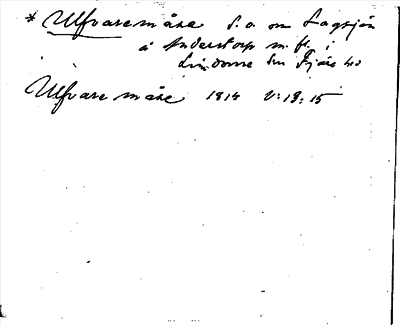 * Ulfvaremåse S.O. om Lagsjön
å Anderstorp m. fl. i
Lindome sn Fjäre hd
Ulfvare måse 1814 V:18:15